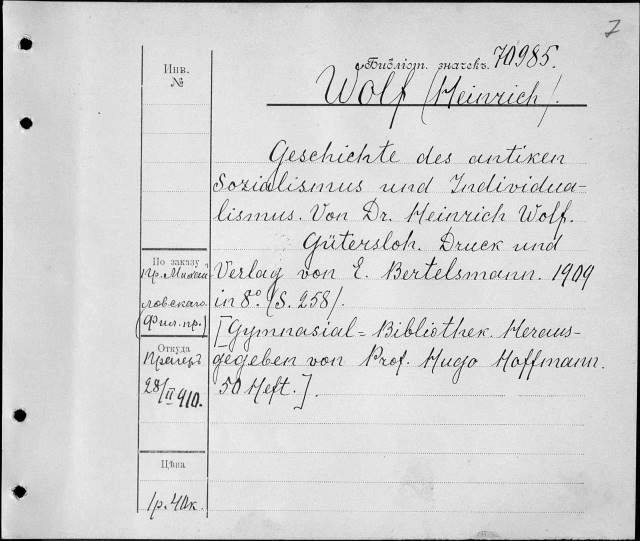 7
Библіот. значекъ 70985.
Инв.
№
Wolf (Heinrich).
Geschichte des antiken
Sozialismus und Individua-
lismus. Von Dr. Heinrich Wolf.
Gütersloh. Druck und
Verlag von C. Bertelsmann. 1909
in 8°. (S. 258).
[Gymnasial-Bibliothek. Heraus-
gegeben von Prof. Hugo Hoffmann.
50 Heft.].
По заказу
пр. Михай
ловскаго
(Фил. пр.)
Откуда
Прегеръ
28/II 910.
Цѣна
1р. 40к.